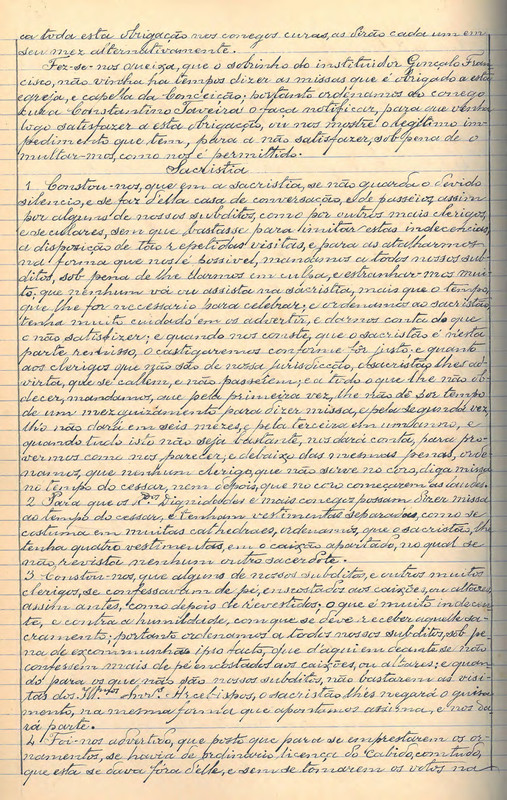 ca toda esta obrigação nos conegos curas, as dirão cada um em
seu mez alternativamente.
Fez-se-nos queixa, que o sobrinho do instituidor Gonçalo Fran
cisco, não vinha ha tempos dizer as missas que é obrigado a esta
egreja, e capella da Conceição; portanto ordinamos ao conego
cura Constantino Taveira o faça notificar, para que venha
logo satisfazer a esta obrigação, ou nos mostre o legitimo im-
pedimento que tem, para a não satisfazer, sob pena de o
multar-mos, como nos é permittido.
Sacristia
1 Constou-nos, que em a sacristia, se não guarda o devido
silencio, e se faz d'ella casa de conversação, e de passeios, assim
por alguns de nossos subditos, como por outros mais clerigos,
e seculares, sem que bastasse para limitar estas indecencias,
a disposição de tão repetidas visitas, e, para as atalharmos
na forma que nos é possivel, mandamos a todos nossos sub-
ditos, sob pena de lhe darmos em culpa, e estranhar-mos mui-
to, que nenhum vá ou assista na sacristia, mais que o tempo,
que lhe for necessario para celebrar; e ordenamos ao sacristão
tenha muito cuidado em os advertir, e dar-nos conta do que
o não satisfizer; e quando nos conste, que o sacristão é n'esta
parte remisso, o castigaremos conforme fôr justo, e quanto
aos clerigos que não são de nossa jurisdicção, o sacristão lhes ad-
virta, que se callem, e não passeiem; e a todo o que lhe não ob-
decer, mandamos, que pela primeira vez, lhe não dê por tempo
de um mez guizamento para dizer missa, e pela segunda vez,
lh'o não dará em seis mezes, e pela terceira em um anno, e
quando tudo isto não seja bastante, nos dará conta, para pro-
vermos como nos parecer, e debaixo das mesmas penas, orde-
namos, que nenhum clerigo, que não serve no côro, diga missa
no tempo do cessar, nem depois, que no coro começarem as laudes.
2 Para que os R.dos Dignidades e mais conegos possam dizer missa
ao tempo do cessar, e tenham vestimentas separadas, como se
costuma em muitas cathedraes, ordenamos, que o sacristão, lhe
tenha quatro vestimentas, em o caixão apartado, no qual se
não revista nenhum outro sacerdote.
3 Constou-nos, que alguns de nossos subditos, e outros muitos
clerigos, se confessavam de pé, encostados aos caixões, ou altares,
assim antes, como depois de revestidos; o que é muito indecen-
te, e contra a humildade, com que se deve receber aquelle sa-
cramento; portanto ordenamos a todos nossos subditos, sob pe-
na de excommunhão ipso facto, que d'aqui em deante se não
confessem mais de pé encostados aos caixões, ou altares; e quan-
do para os que, não são nossos subditos, não bastarem as visi-
tas dos Ill.mos Snr.s Arcebispos, o sacristão lhes negará o guiza-
mento, na mesma forma que apontamos assima, e nos da-
rá parte.
4 Foi-nos advertido, que posto que para se emprestarem os or-
namentos, se havia de pedir licença do Cabido, com tudo,
que esta se dava fóra d'elle, e sem se tomarem os votos na